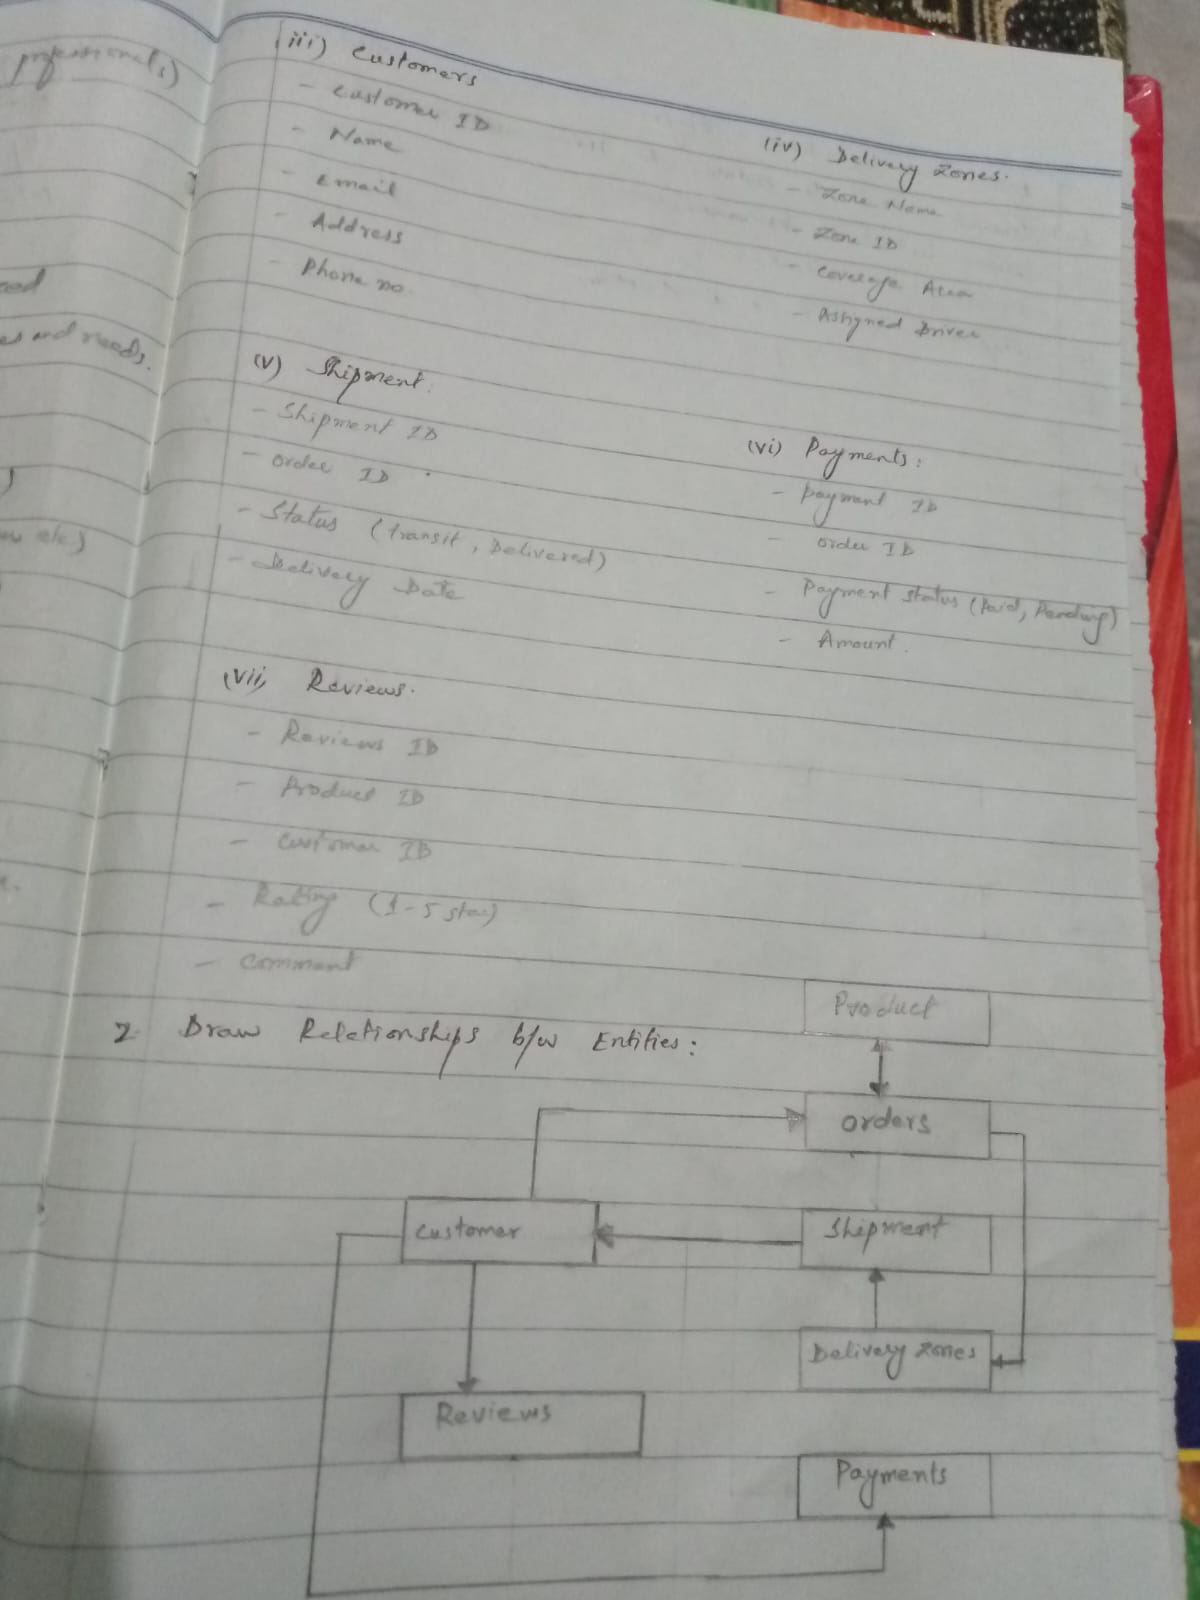 professionals)
eed
es and needs.
)
etc)
iii) Customers
- Customer ID
- Name
- Email
- Address
- Phone no.
(iv) Delivery Zones.
- Zone Name
- Zone ID
- Coverage Area
- Assigned Driver
(v) Shipment.
- Shipment ID
- Order ID
- Status (transit, Delivered)
- Delivery Date
(vi) Payments:
- Payment ID
- Order ID
- Payment Status (Paid, Pending)
- Amount.
(vii) Reviews.
- Reviews ID
- Product ID
- Customer ID
- Rating (1-5 star)
- Comment
2. Draw Relationships b/w Entities:
Product
Orders
Customer
Shipment
Delivery Zones
Reviews
Payments